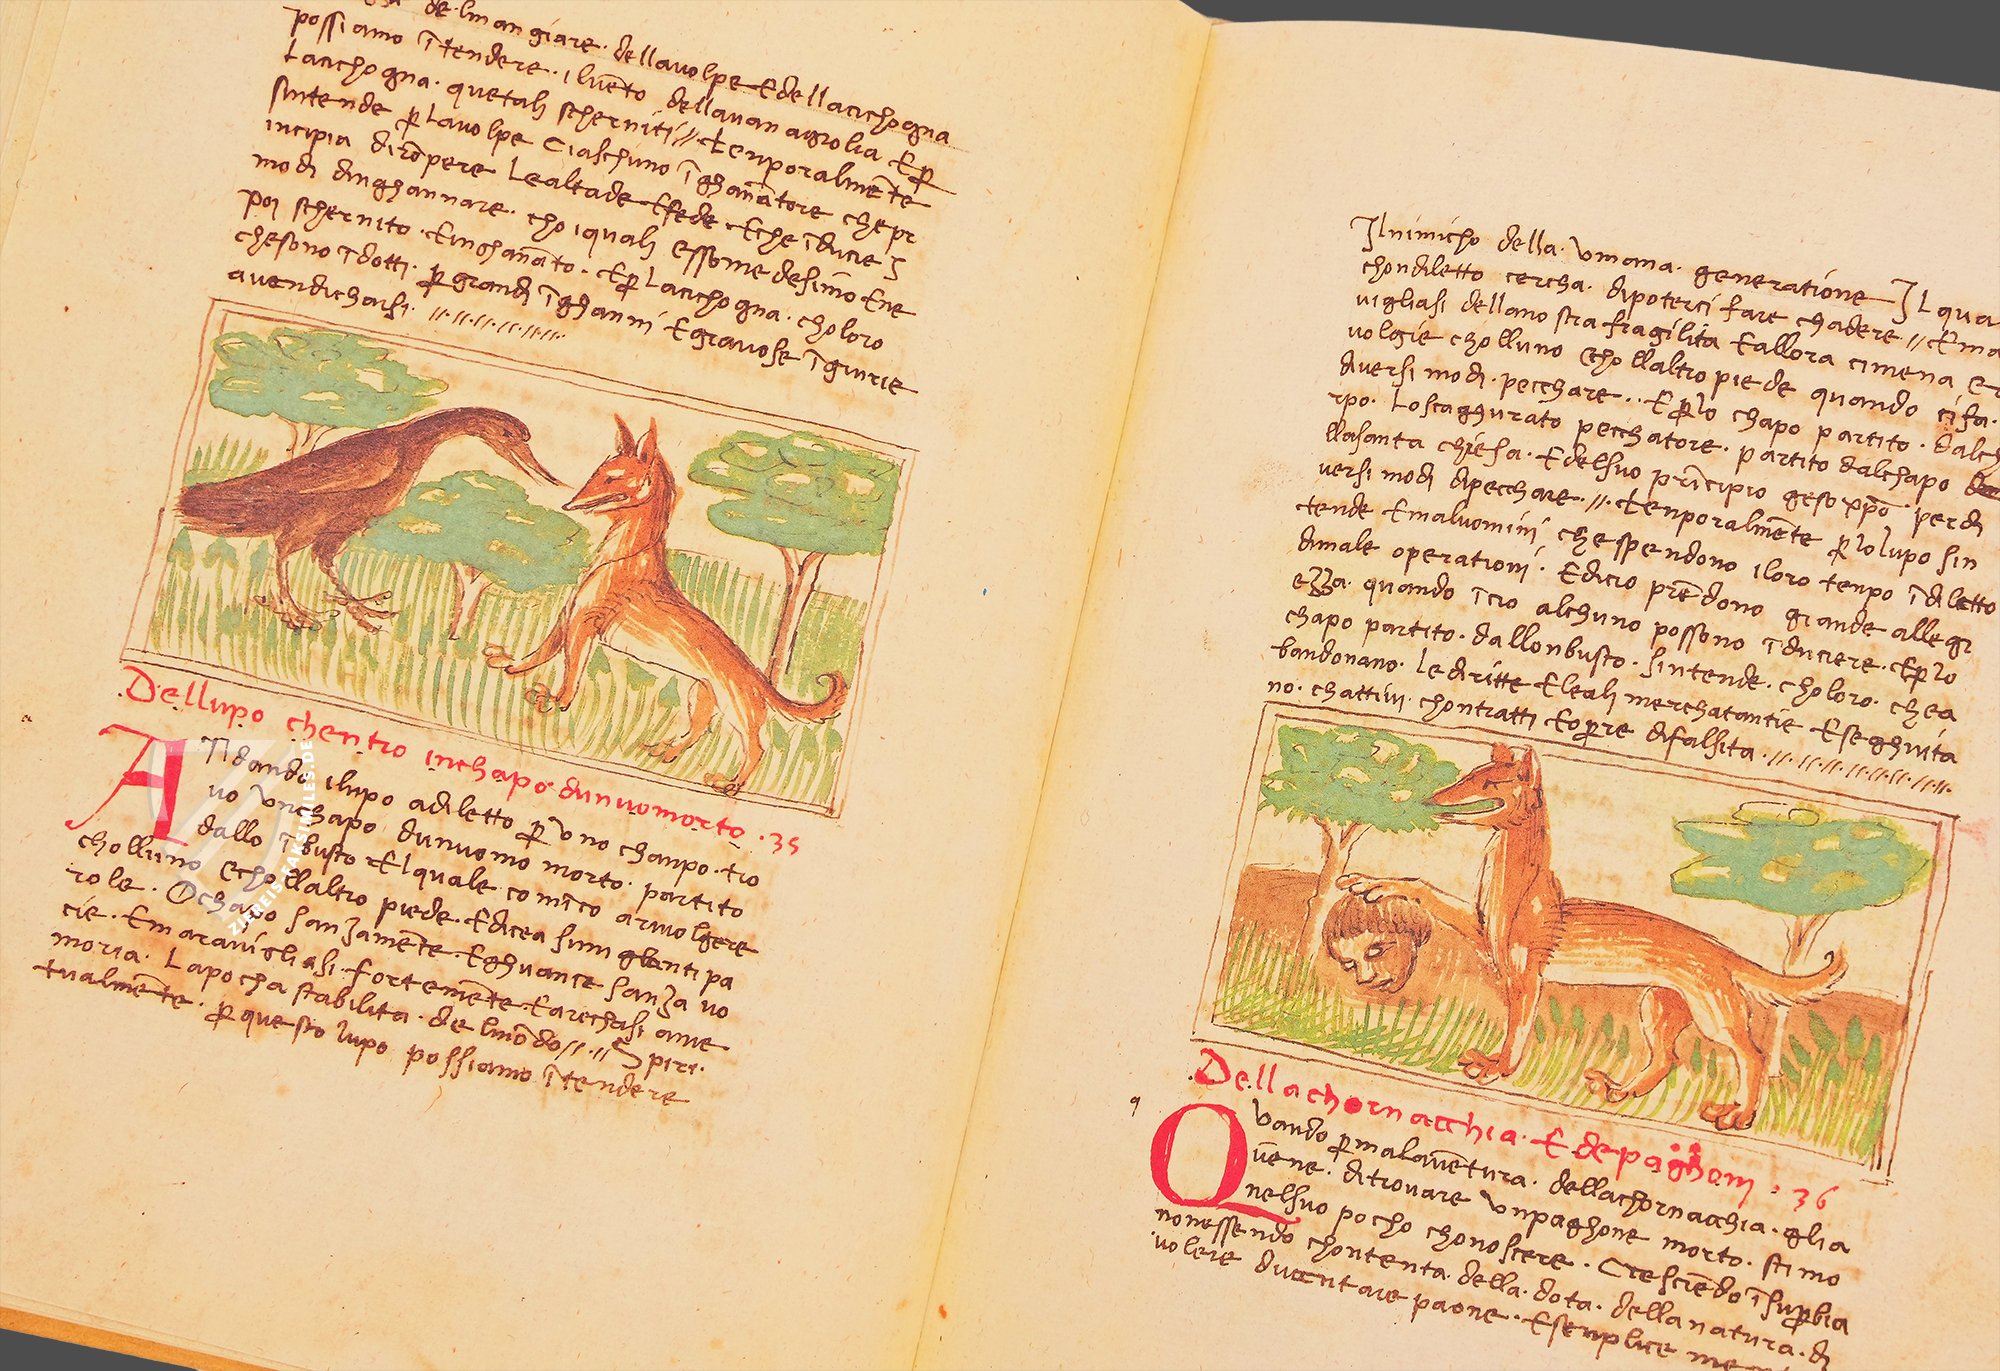 de lmangiare · dellauolpe Edellacichogna
possiamo ītendere · iluēto dellauanagrolia Ep̄
Lacichogna · quetali scherniti // tenporalmēte
sintende p̄ Lauolpe Ciaschuno īghānatore chepr
incipia dirōpere Lealtade Efede Eche īducie i
modi dinghannare · cho iquali essome desimo Ene
poi schernito · Einghānato · Ep̄ Lacichogna · choloro
chesono īdotti · p̄ grandi īghanni Egrauose īgiurie
auendicharsi · //·//·//·//·//·//·//
·Dellupo chentro inchapo dunuomorto · 35
ATidando ilupo adiletto p̄ Vno chanpo · tro
uo Vnchapo dunuomo morto · partito
dallo ībusto Elquale comīco ariuolgere
cholluno echollaltro piede · Edicea sumiglanti pa
role · Ochapo sanzamēte · Eghuance sanza uo
cie · Emarauigliasi fortemēte Earechasi ame
moria · Lapocha stabilita · de lmōdo //·// Spiri·
tualmēte · p̄ questo lupo possiamo ītendere
Ilnimicho della · Vmana · generatione Ilqua
chondiletto cercha · dipoterci fare chadere // Ema
uigliasi dellanostra fragilita Eallora cimena e
uolgie cholluno echollaltro piede quando cifa ·
diuersi modi · pecchare ·· Ep̄lo chapo partito · dalch
rpo · Losciaghurato pecchatore · partito dalchapo
llasanta chiesa · Edelsuo prīncipio geso xp̄o · perdi
uersi modi dipecchare ·//· tenporalmēte p̄ lolupo sin
tende Emaluomini che spendono iloro tenpo īdiletto
dimale operationi · Edicio prēdono grande allegr
ezza · quando īcio alchuno possono īducere · Ep̄lo
chapo partito · dallonbusto · sintende · choloro · chea
bandonano · le diritte Eleali merchatantie Eseghuita
no · chattiui · chontratti Eop̄re difalsita · //·//·//·//·//·//·//
·Dellachornacchia · E depaghoni · 36
QVando p̄ malauētura · dellachornacchia · glia
uēne · ditrouare Vnpaghone morto · stimo
nelsuo pocho chonoscere · Cresciēdo īsup̄bia
nonessendo chontenta · della · dota · dellanatura · di
uolere diuentare paone · Esenplice
ZIEREIS-FAKSIMILES.DE